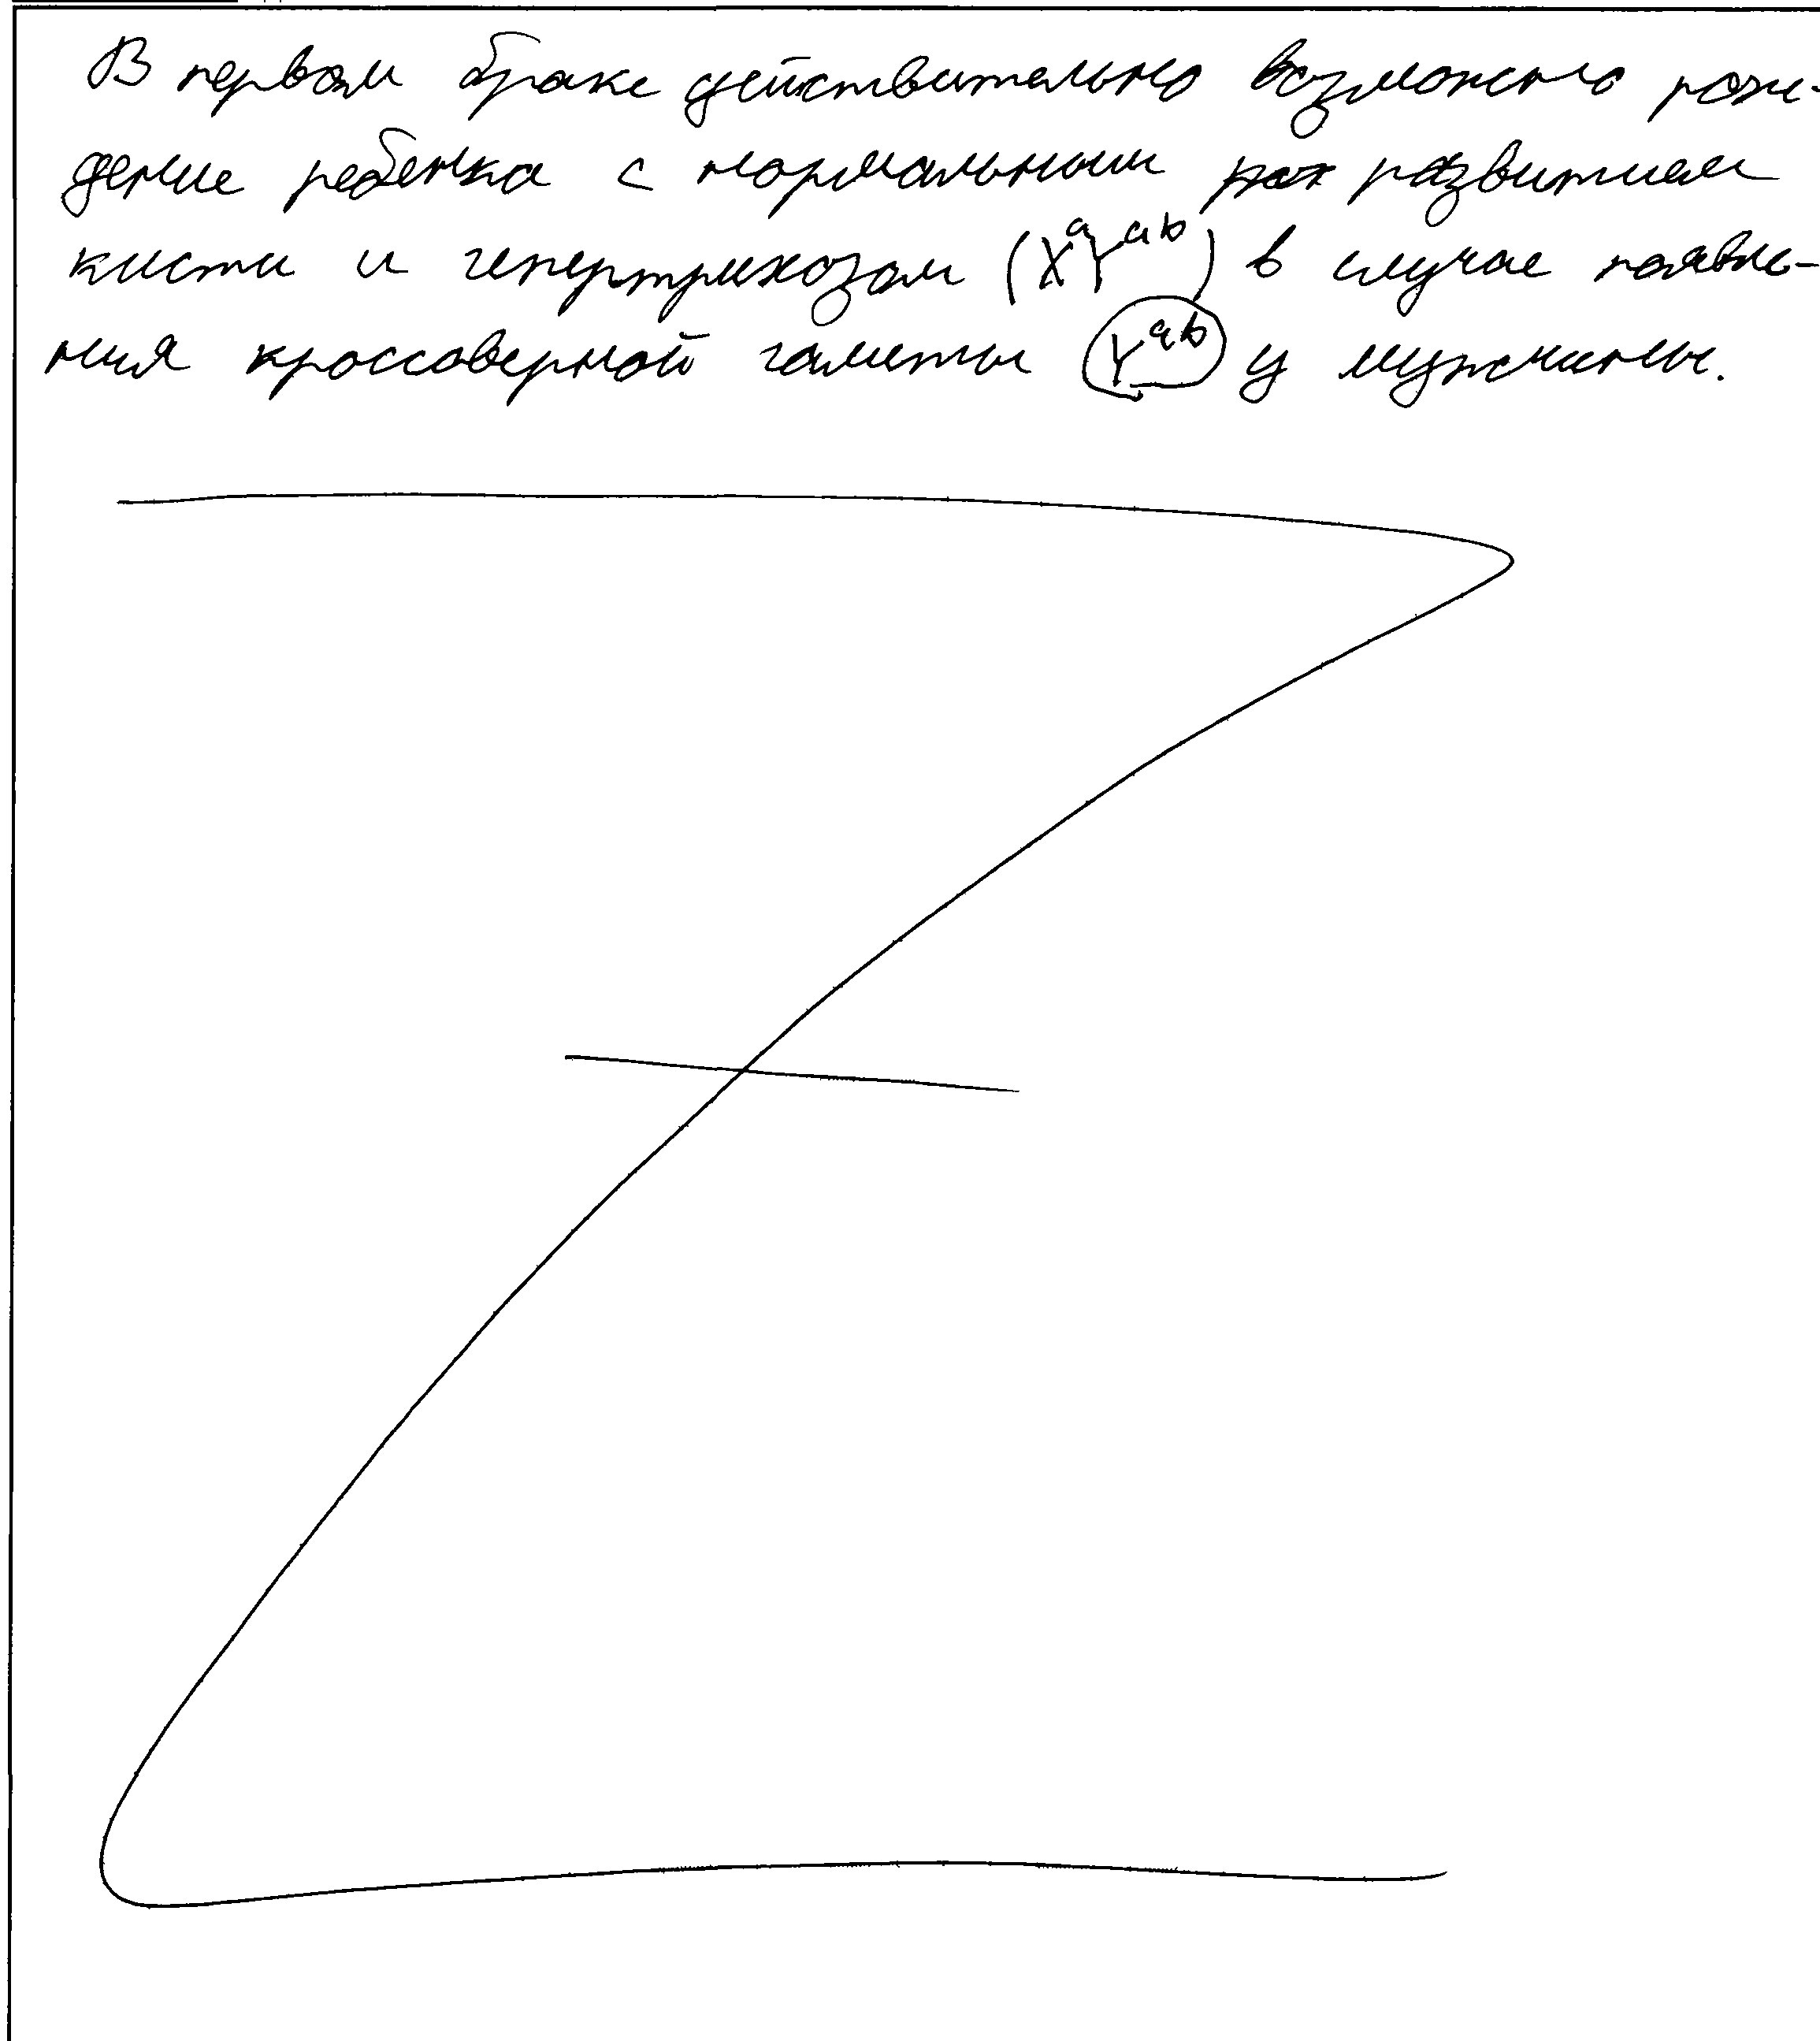 В первом браке действительно возможно рож-
дение ребенка с нормальным развитием
кисти и гипертрихозом (XᵃYᵃᵇ) в случае появле-
ния кроссоверной гаметы Yᵃᵇ у мужчины.